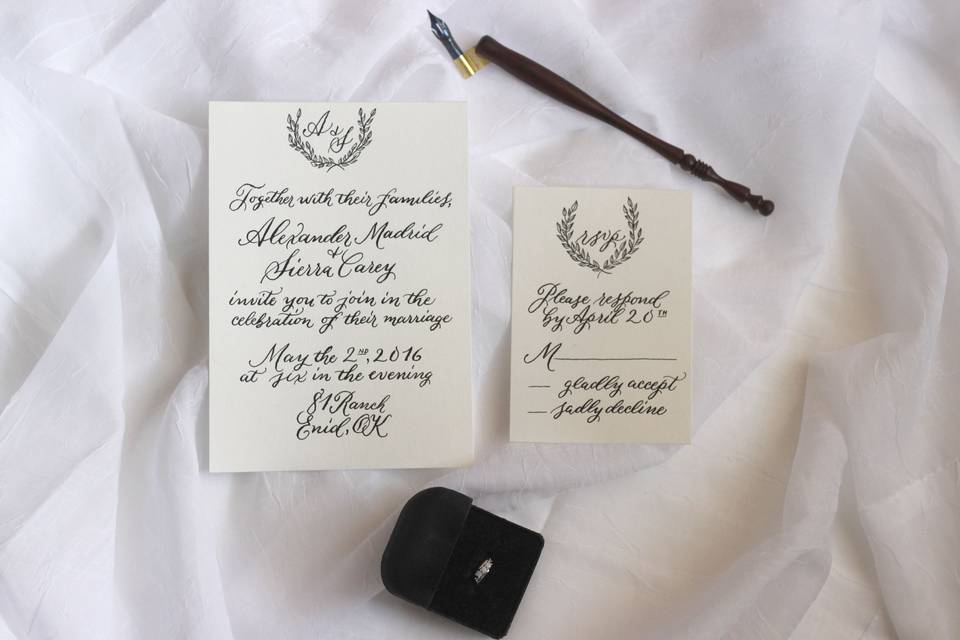 A & S
Together with their families,
Alexander Madrid
&
Sierra Carey
invite you to join in the
celebration of their marriage
May the 2ND, 2016
at six in the evening
81 Ranch
Enid, OK
rsvp
Please respond
by April 20TH
M
gladly accept
sadly decline